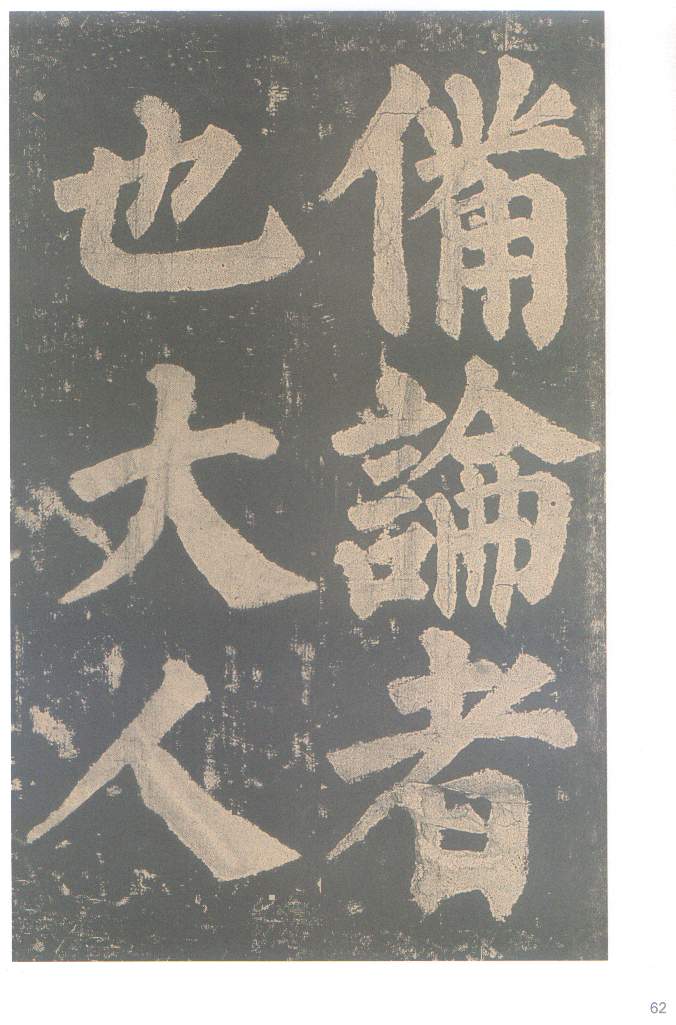 備論者
也大人
62